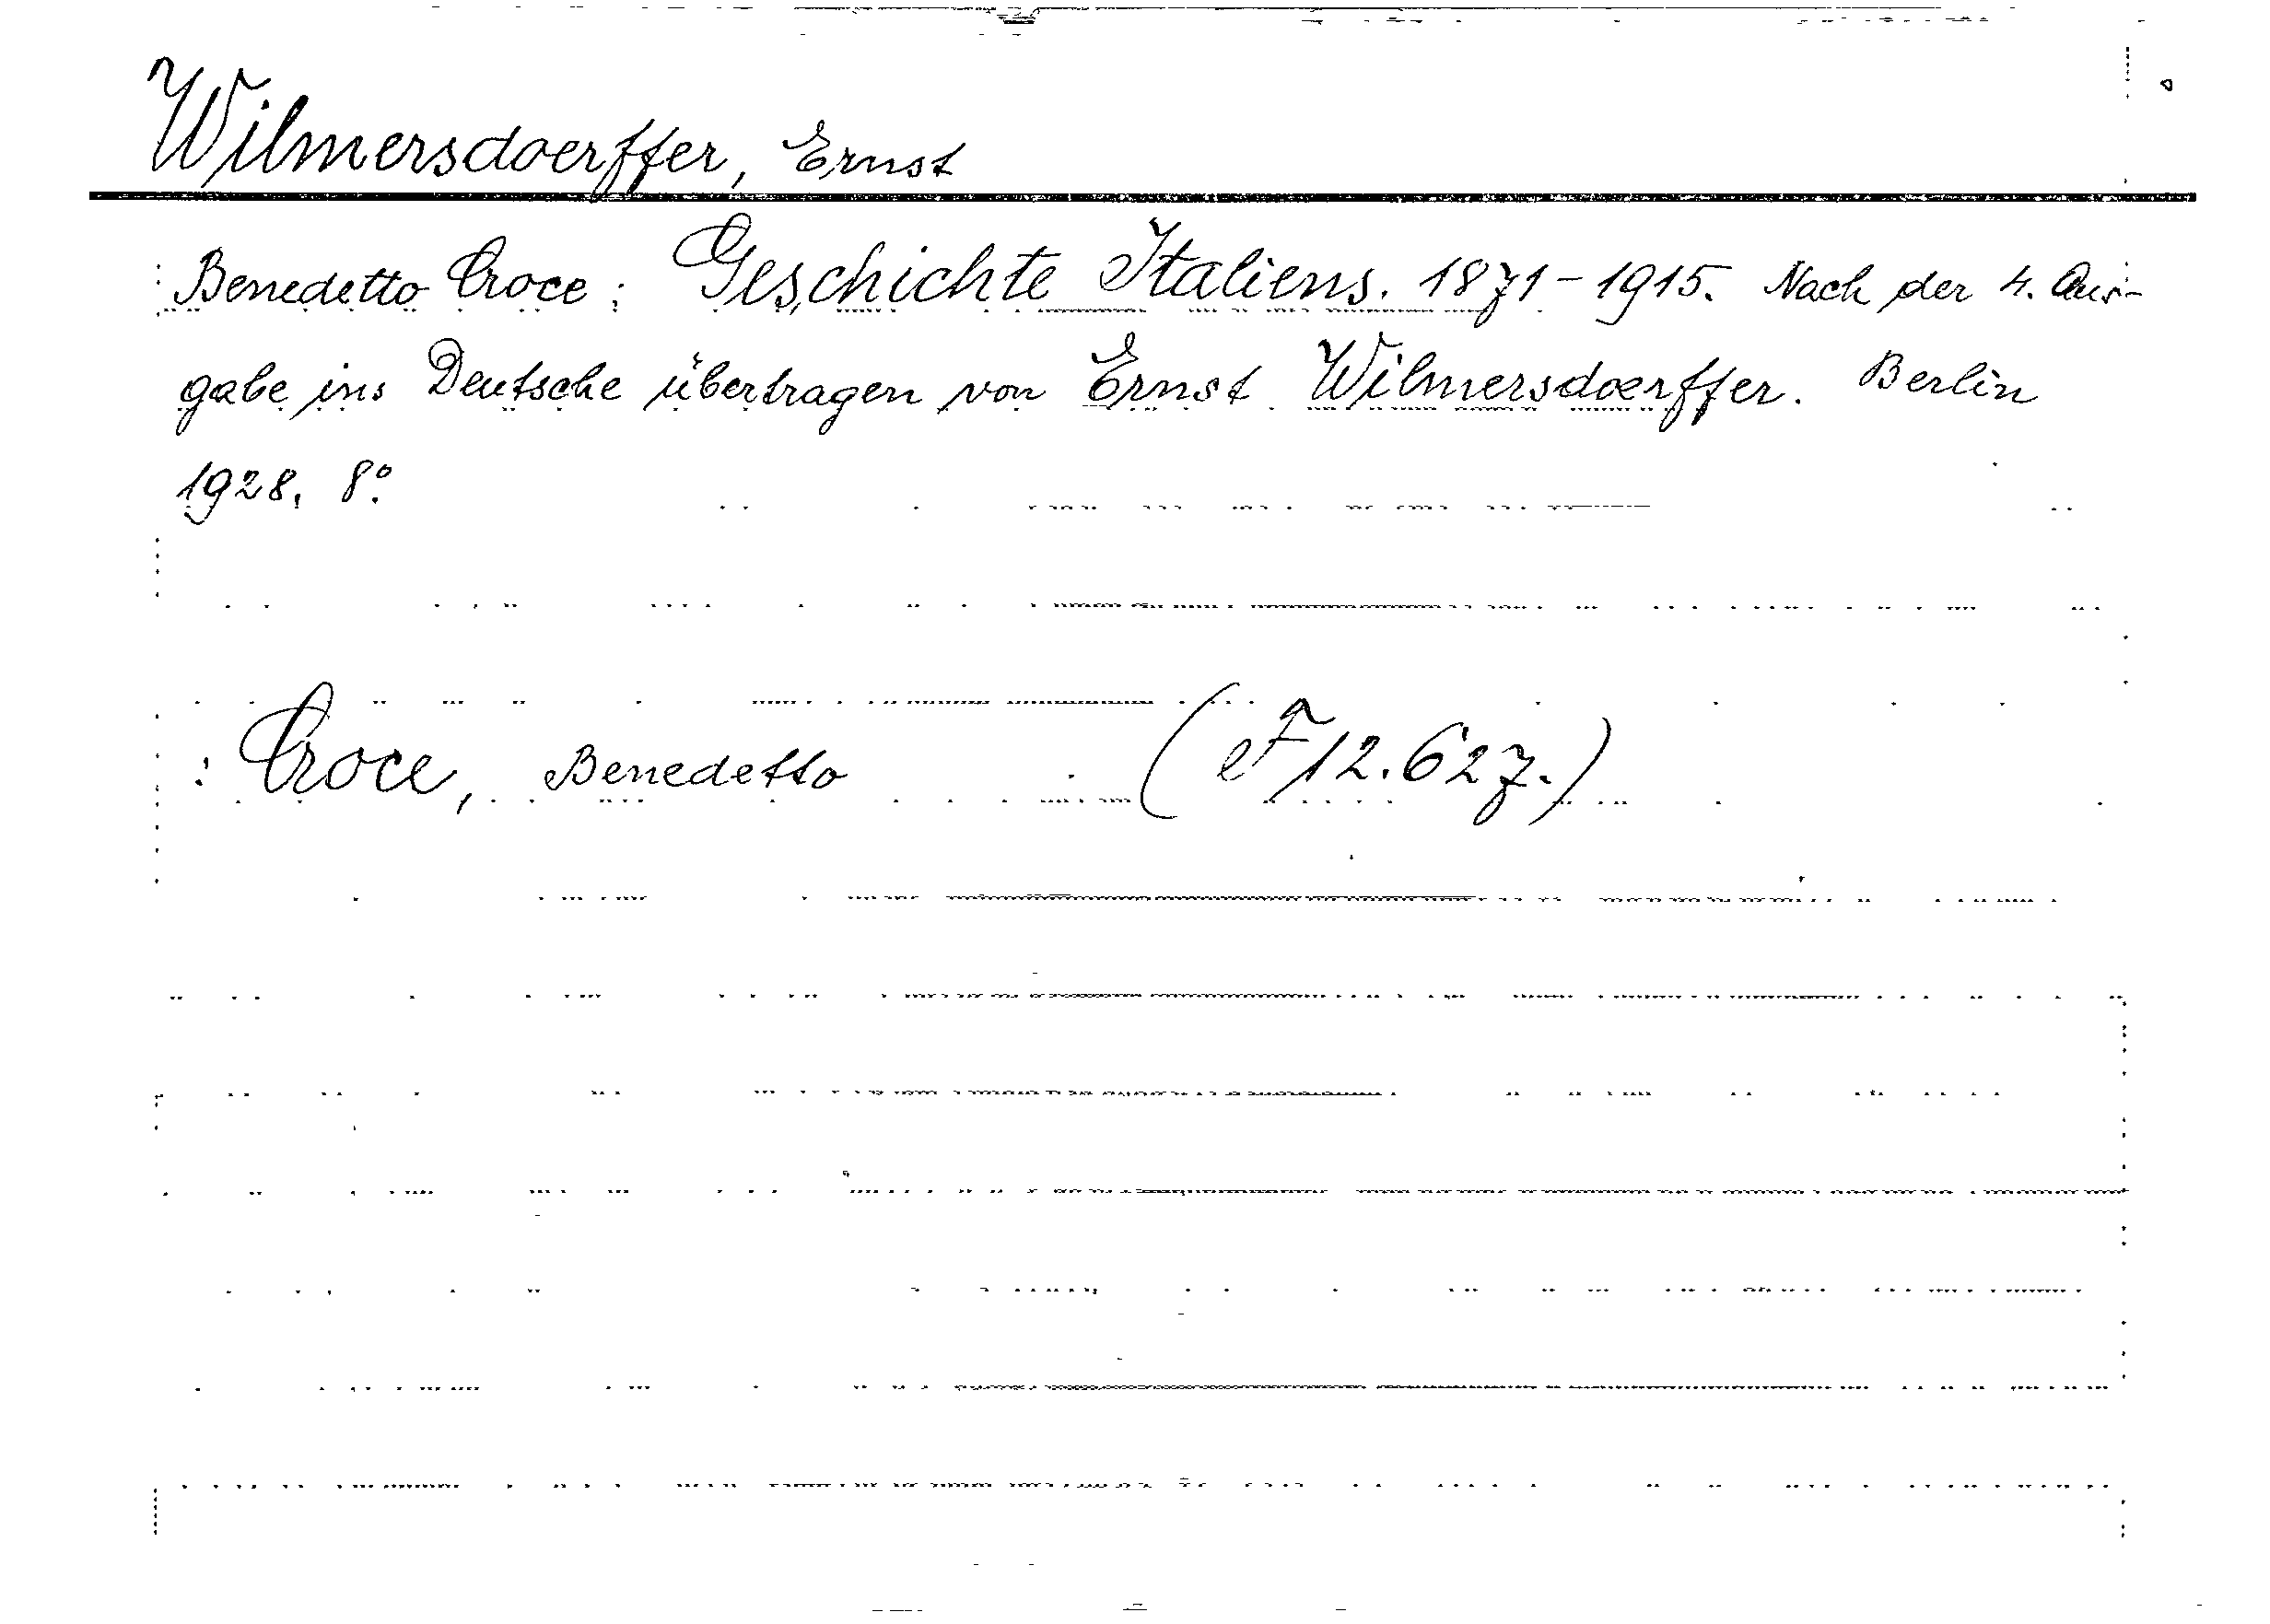 Wilmersdoerffer, Ernst
Benedetto Croce: Geschichte Italiens. 1871-1915. Nach der 4. Aus-
gabe ins Deutsche übertragen von Ernst Wilmersdoerffer. Berlin
1928. 8°.
: Croce, Benedetto (eF 12.627.)